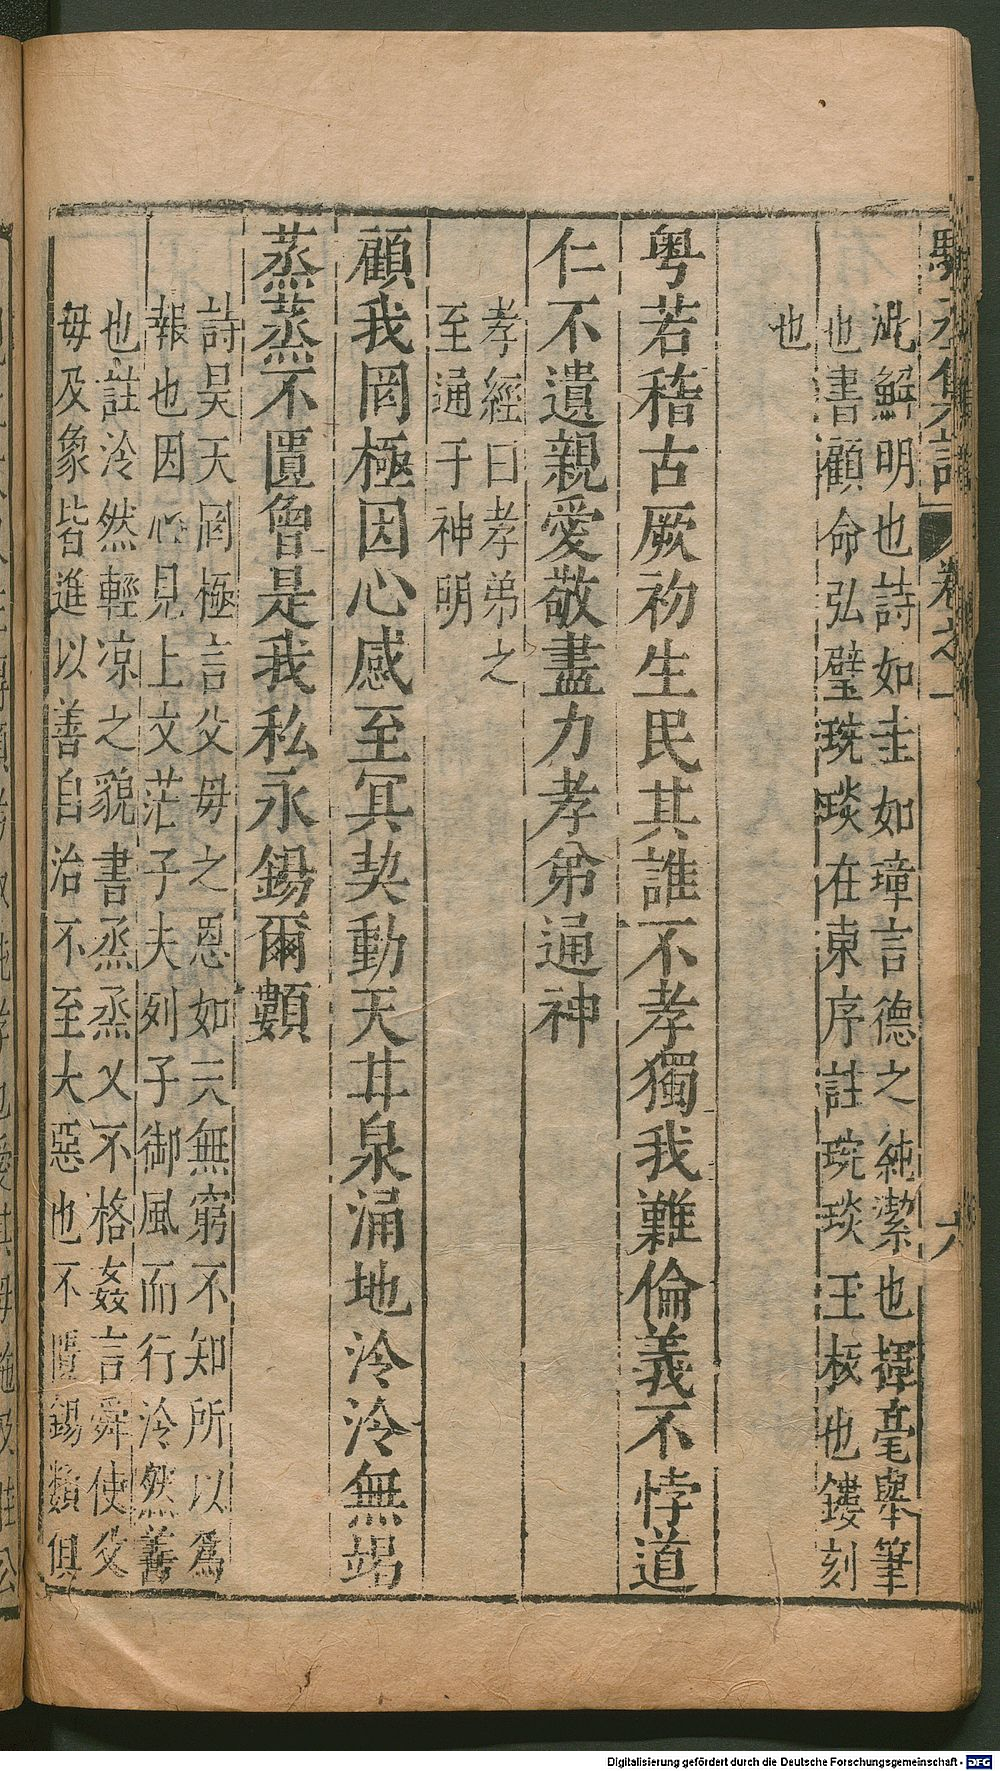 駱丞集註 卷之一 六
泥解明也詩如圭如璋言德之純潔也揮毫舉筆
也書顧命弘璧琬琰在東序註琬琰王核也鏤刻
也
粤若稽古厥初生民其誰不孝獨我難倫義不悖道
仁不遺親愛敬盡力孝弟通神
孝經曰孝弟之
至通于神明
顧我罔極因心感至冥契動天甘泉涌地泠泠無竭
蒸蒸不匱曾是我私永錫爾類
詩昊天罔極言父母之恩如天無窮不知所以為
報也因心見上文茫子夫列子御風而行泠然善
也註泠然輕凉之貌書烝烝乂不格姦言舜使父
母及象皆進以善自治不至大惡也不匱錫類俱
Digitalisierung gefördert durch die Deutsche Forschungsgemeinschaft - DFG